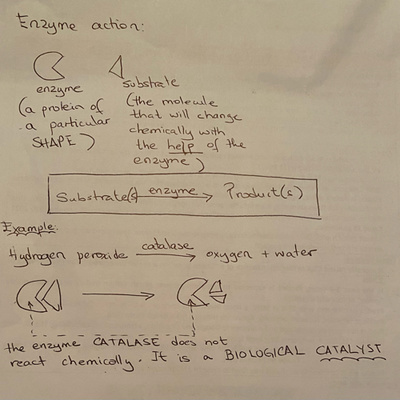 Enzyme action:
enzyme
(a protein of
a particular
SHAPE)
substrate
(the molecule
that will change
chemically with
the help of the
enzyme)
Substrate(s) enzyme Product(s)
Example:
Hydrogen peroxide catalase oxygen + water
the enzyme CATALASE does not
react chemically. It is a BIOLOGICAL CATALYST